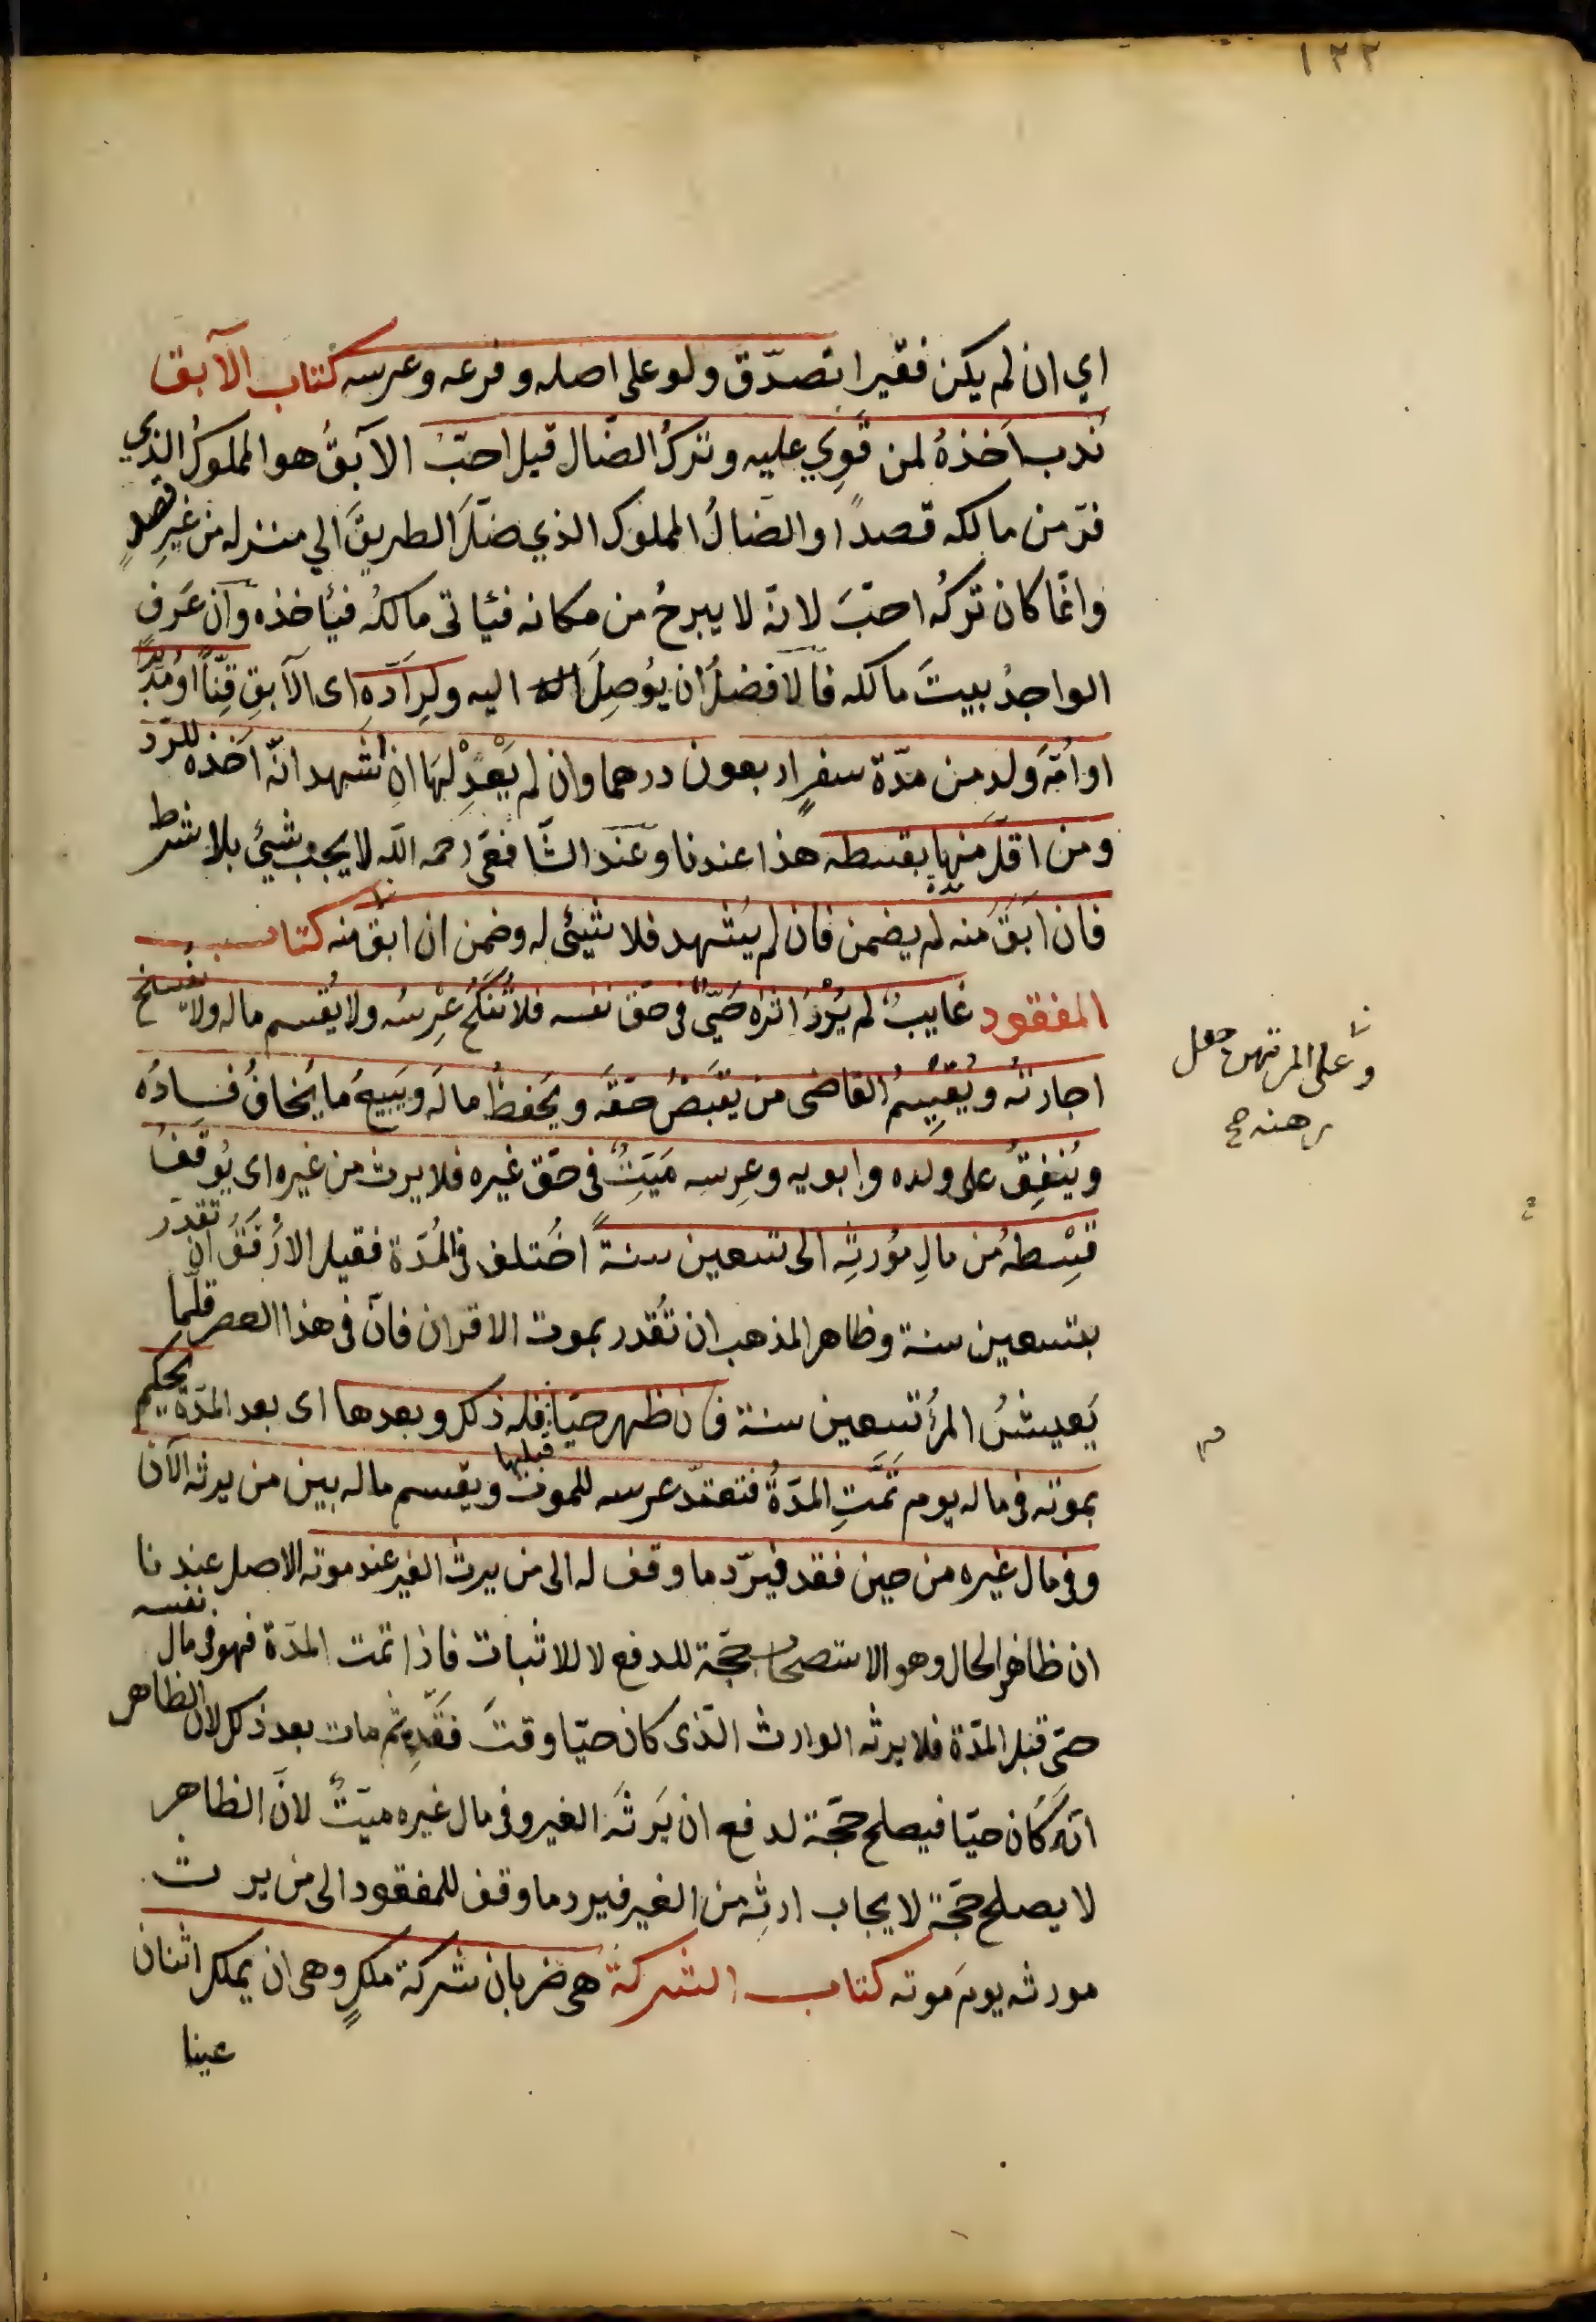 ١٢٢
اي ان لم يكن فقيرا تصدّق ولو على اصله وفرعه وعرسه كتاب الآبق
نُدب اَخذهُ لمن قَوِي عليه وتركُ الضّال قيل احبّ الآبقُ هو المملوكُ الذي
فرّ من مالكه قصدًا والضالُ المملوك الذي ضلّ الطريقَ الي منزله من غيرِ قصدٍ
وانّما كان تركُه احبَّ لانّه لا يبرحُ من مكانه فيأتى مالكُه فيأخذه وان عَرف
الواجدُ بيتَ مالكه فالافضلُ ان يُوصِلَ اليه ولِرادّهِ اى الآبقِ قِنّاً او مُدبّرًا
او اُمَّ ولد من مدّة سفرٍ اربعون درهما وان لم يَعْدِلْها انِ اشهد انّه اَخذه للرّدّ
ومن اقلّ منها بقسطه هذا عندنا وعند الشّافعىّ رحمه الله لا يجب شيئ بلا شرط
فان اَبَقَ منه لم يضمن فان لم يُشهد فلا شيئى له وضمن ان ابق منه كتاب
المفقود غايبٌ لم يُدْرَ اثره حَىٌّ فى حقّ نفسه فلا تُنكَحُ عِرْسُه ولا يُقسم ماله ولا تُفسخ
اجارتُه ويُقيمُ القاضى من يَقبَضُ حَقَّه ويَحفظُ مالَه ويَبيعُ ما يَخافُ فسادُه
ويُنفِقُ على ولده وابويه وعِرسِه مَيّتٌ فى حقّ غيره فلا يرث من غيره اى يُوقَفُ
قِسْطهُ من مالِ مُورثِه الى تسعين سنةً اختُلف فى المُدّة فقيل الارفَقُ ان تقدّر
بتسعين سنة وظاهر المذهب ان تُقدر بموت الاقران فانّ فى هذا العصر قلّما
يَعيشُ المرأُ تسعين سنة فان ظهر حيّا فله ذلك وبعدها اى بعد المدّة يحكم
قبلها
بموته فى ماله يوم تمّتِ المدّةُ فتعتدّ عرسه للموت ويقسم ماله بين من يرثه الآن
وفى مال غيره من حين فقد فيُردّ ما وقف له الى من يرث الغير عند موته الاصل عندنا
ان ظاهر الحال وهو الاستصحاب حجّة للدفع لا للاثبات فاذا تمّت المدّة فهو فى مال نفسه
حىّ قبل المدّة فلا يرثه الوارث الّذى كان حيّا وقتَ فَقْدِه ثم مات بعد ذلك لان الظاهر
انّه كان حيّا فيصلح حجّة لدفع ان يَرثَه الغير وفى مال غيره ميّتٌ لانّ الظاهر
لا يصلح حجّة لايجاب ارثِه من الغير فيرد ما وقف للمفقود الى من يرث
مورثه يومَ موته كتاب الشركة هى ضربان شركة ملكٍ وهى ان يملك اثنان
عينا
وعلى المرتهن جعل
رهنه صح